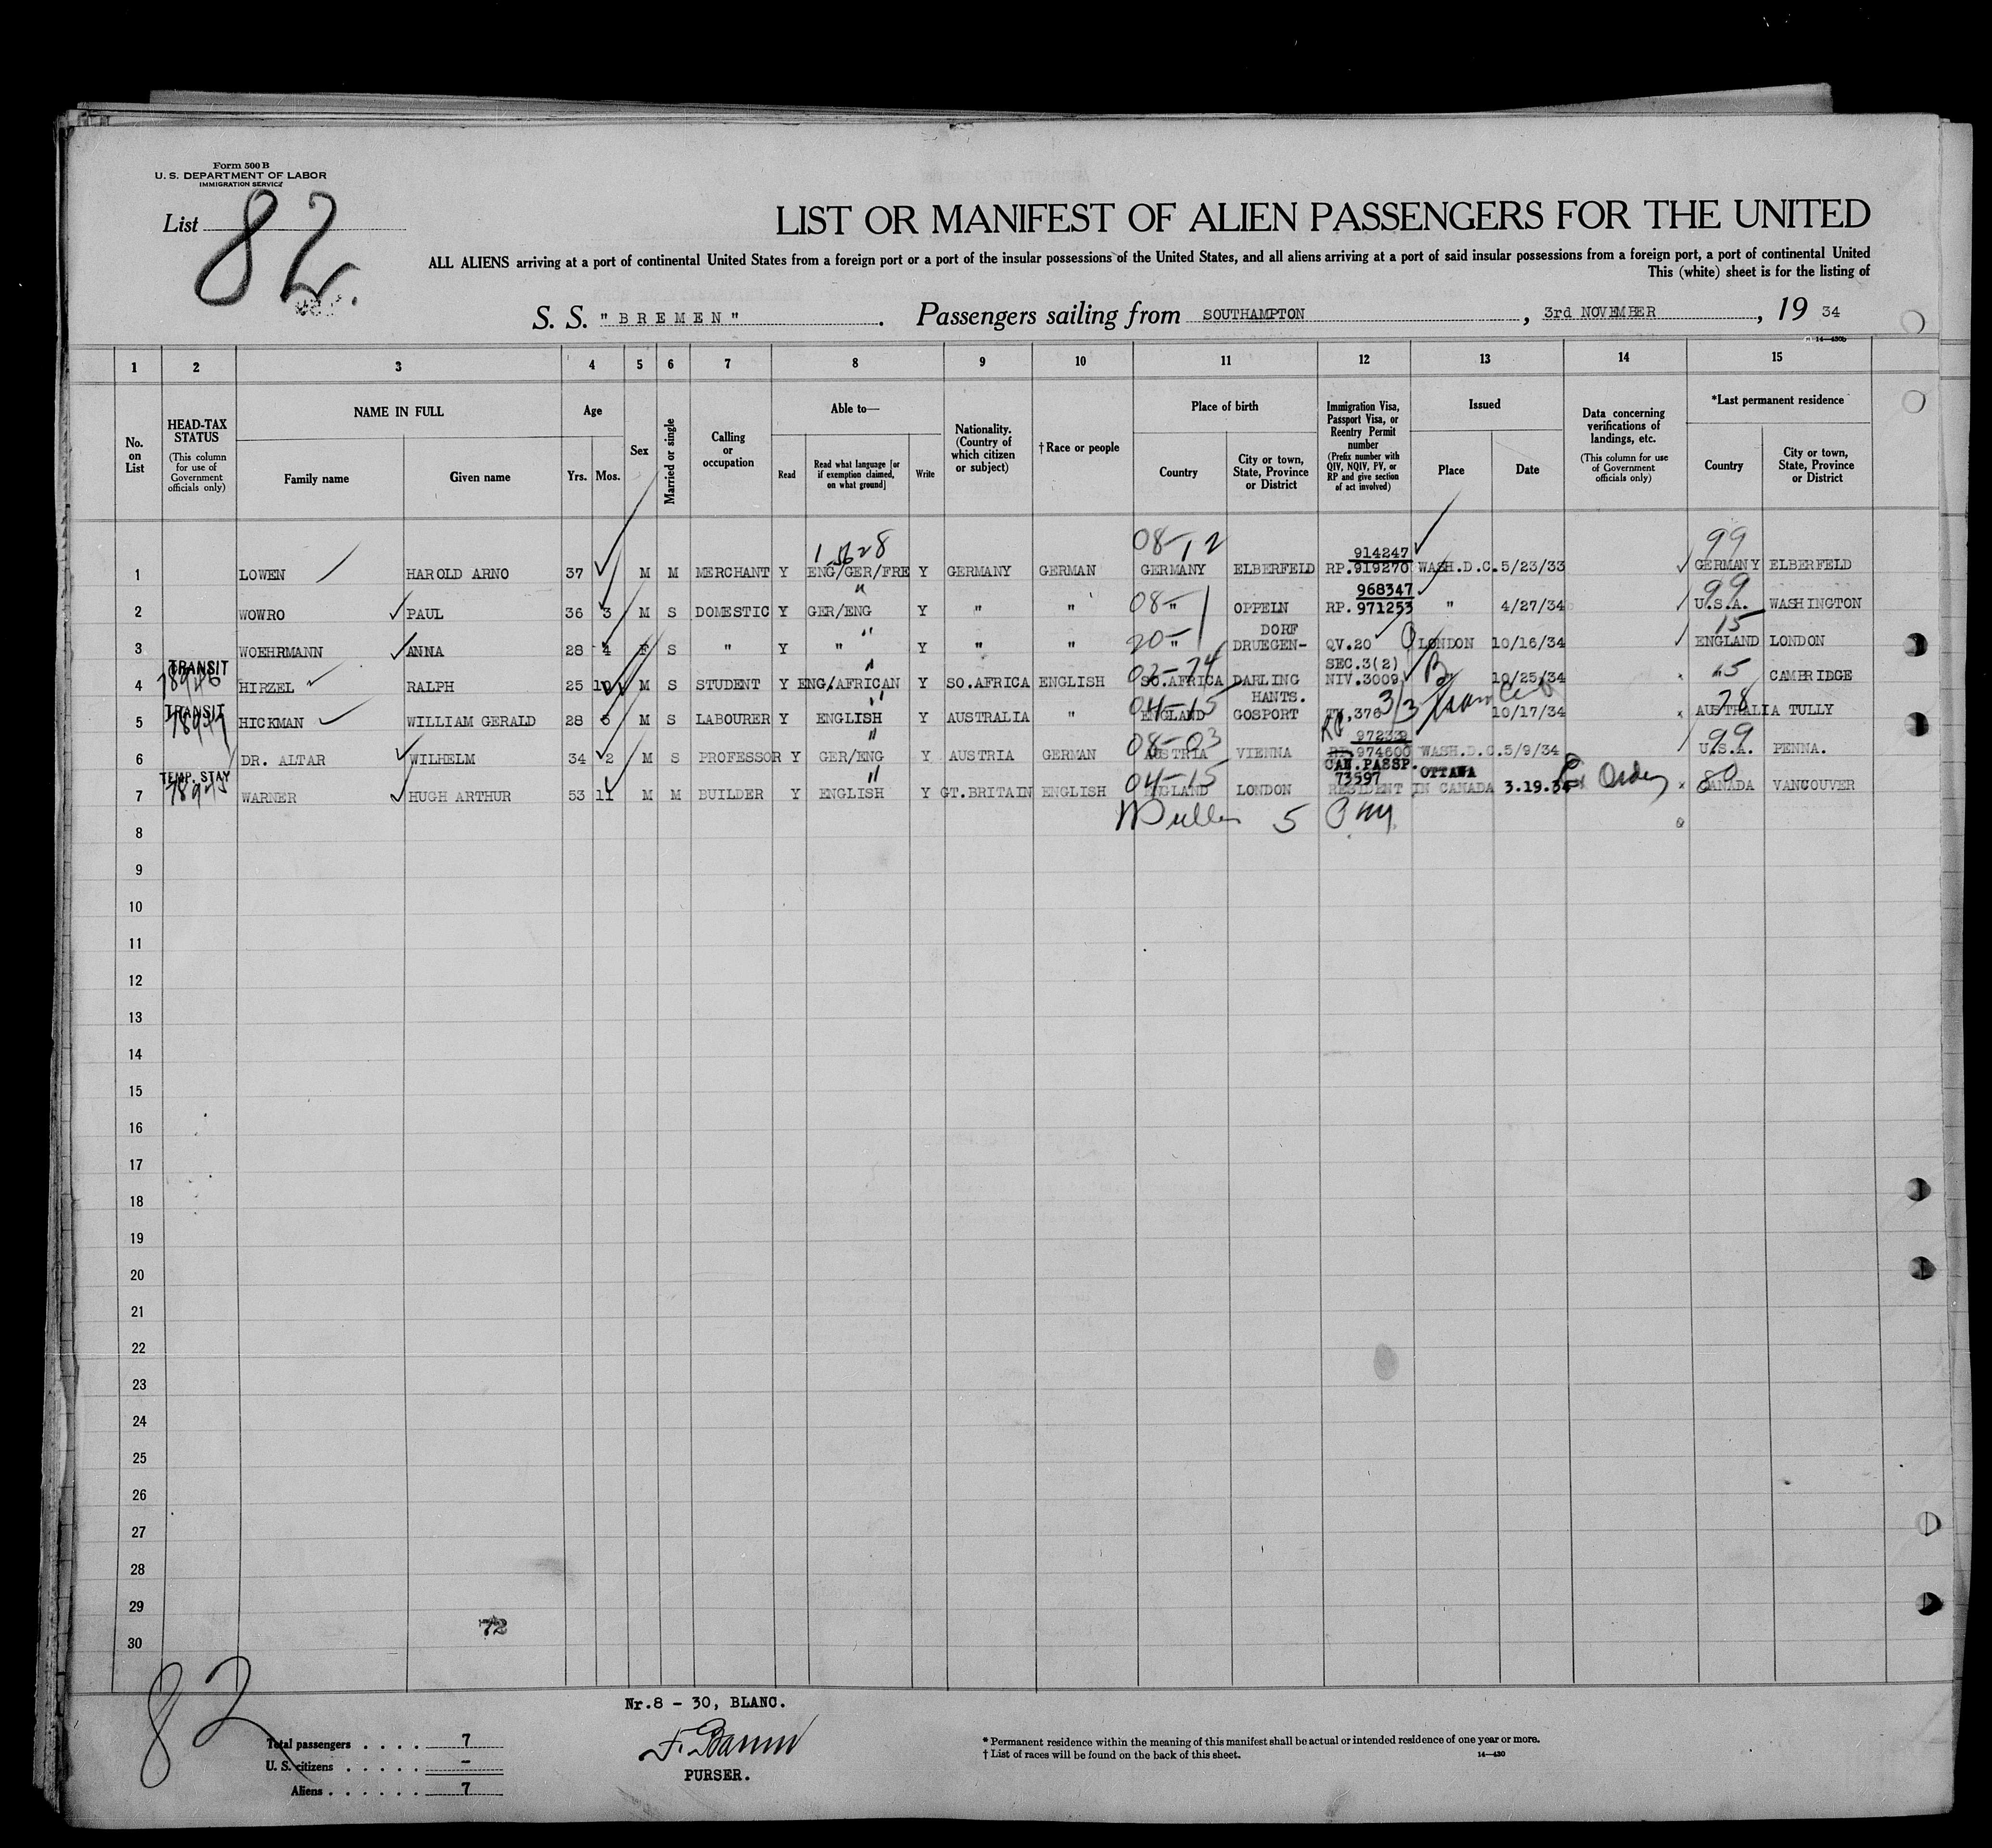 Form 500 B
U. S. DEPARTMENT OF LABOR
IMMIGRATION SERVICE
List 82.
LIST OR MANIFEST OF ALIEN PASSENGERS FOR THE UNITED
ALL ALIENS arriving at a port of continental United States from a foreign port or a port of the insular possessions of the United States, and all aliens arriving at a port of said insular possessions from a foreign port, a port of continental United
This (white) sheet is for the listing of
S. S. "BREMEN". Passengers sailing from SOUTHAMPTON, 3rd NOVEMBER, 19 34
14—430b
1 2 3 4 5 6 7 8 9 10 11 12 13 14 15
No. on List
HEAD-TAX STATUS (This column for use of Government officials only)
NAME IN FULL Family name Given name
Age Yrs. Mos.
Sex
Married or single
Calling or occupation
Able to— Read Read what language [or if exemption claimed, on what ground] Write
Nationality. (Country of which citizen or subject)
†Race or people
Place of birth Country City or town, State, Province or District
Immigration Visa, Passport Visa, or Reentry Permit number (Prefix number with QIV, NQIV, PV, or RP and give section of act involved)
Issued Place Date
Data concerning verifications of landings, etc. (This column for use of Government officials only)
*Last permanent residence Country City or town, State, Province or District
08-12 914247 99
1 LOWEN HAROLD ARNO 37 M M MERCHANT Y ENG/GER/FRE Y GERMANY GERMAN GERMANY ELBERFELD RP.919270 WASH.D.C. 5/23/33 GERMANY ELBERFELD
08- 968347 99
2 WOWRO PAUL 36 3 M S DOMESTIC Y GER/ENG Y " " " OPPELN RP. 971253 " 4/27/34 U.S.A. WASHINGTON
20- DORF 15
3 WOEHRMANN ANNA 28 4 F S " Y " Y " " " DRUEGEN- QV.20 LONDON 10/16/34 ENGLAND LONDON
TRANSIT 78946 SEC.3(2)
4 HIRZEL RALPH 25 10 M S STUDENT Y ENG/AFRICAN Y SO.AFRICA ENGLISH SO.AFRICA DARLING NIV.3009 10/25/34 15 CAMBRIDGE
TRANSIT 04-15 HANTS. 3/3 78
5 HICKMAN WILLIAM GERALD 28 6 M S LABOURER Y ENGLISH Y AUSTRALIA " ENGLAND GOSPORT TV.376 10/17/34 AUSTRALIA TULLY
08-03 972339 99
6 DR. ALTAR WILHELM 34 2 M S PROFESSOR Y GER/ENG Y AUSTRIA GERMAN AUSTRIA VIENNA RP.974600 WASH.D.C. 5/9/34 U.S.A. PENNA.
TEMP. STAY 78945 04-15 CAN.PASSP. 73597 OTTAWA 80
7 WARNER HUGH ARTHUR 53 11 M M BUILDER Y ENGLISH Y GT.BRITAIN ENGLISH ENGLAND LONDON RESIDENT IN CANADA 3.19.34 CANADA VANCOUVER
8
9
10
11
12
13
14
15
16
17
18
19
20
21
22
23
24
25
26
27
28
29
72
30
82
Nr.8 - 30, BLANC.
Total passengers . . . . 7
U. S. citizens . . . . . –
Aliens . . . . . . 7
PURSER.
* Permanent residence within the meaning of this manifest shall be actual or intended residence of one year or more.
† List of races will be found on the back of this sheet.
14—430